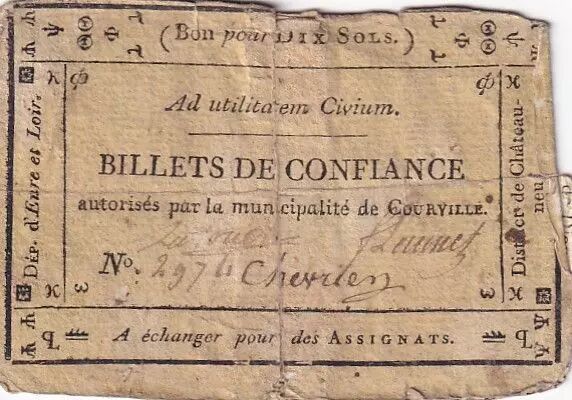 (Bon pour DIX SOLS.)
Ad utilitatem Civium.
BILLETS DE CONFIANCE
autorisés par la municipalité de COURVILLE.
No. 2974 Chevrier
A échanger pour des ASSIGNATS.
Dép. d'Eure et Loir.
District de Château-
neuf